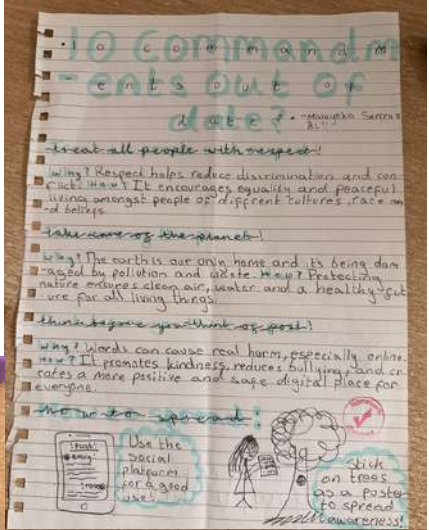 10 commandm
-ents out of
date?
treat all people with respect!
Why? Respect helps reduce discrimination and con
flict. How? It encourages equality and peaceful
living amongst people of different cultures, race an
-d beliefs.
take care of the planet!
Why? The earth is our only home and it's being dam
-aged by pollution and waste. How? Protecting
nature ensures clean air, water and a healthy fut
ure for all living things.
think before you think of post!
Why? Words can cause real harm, especially online.
How? It promotes kindness, reduces bullying, and cr
eates a more positive and safe digital place for
everyone.
how to spread:
Use the
social
platform
for a good
use!
Stick
on trees
as a poster
to spread
awareness!